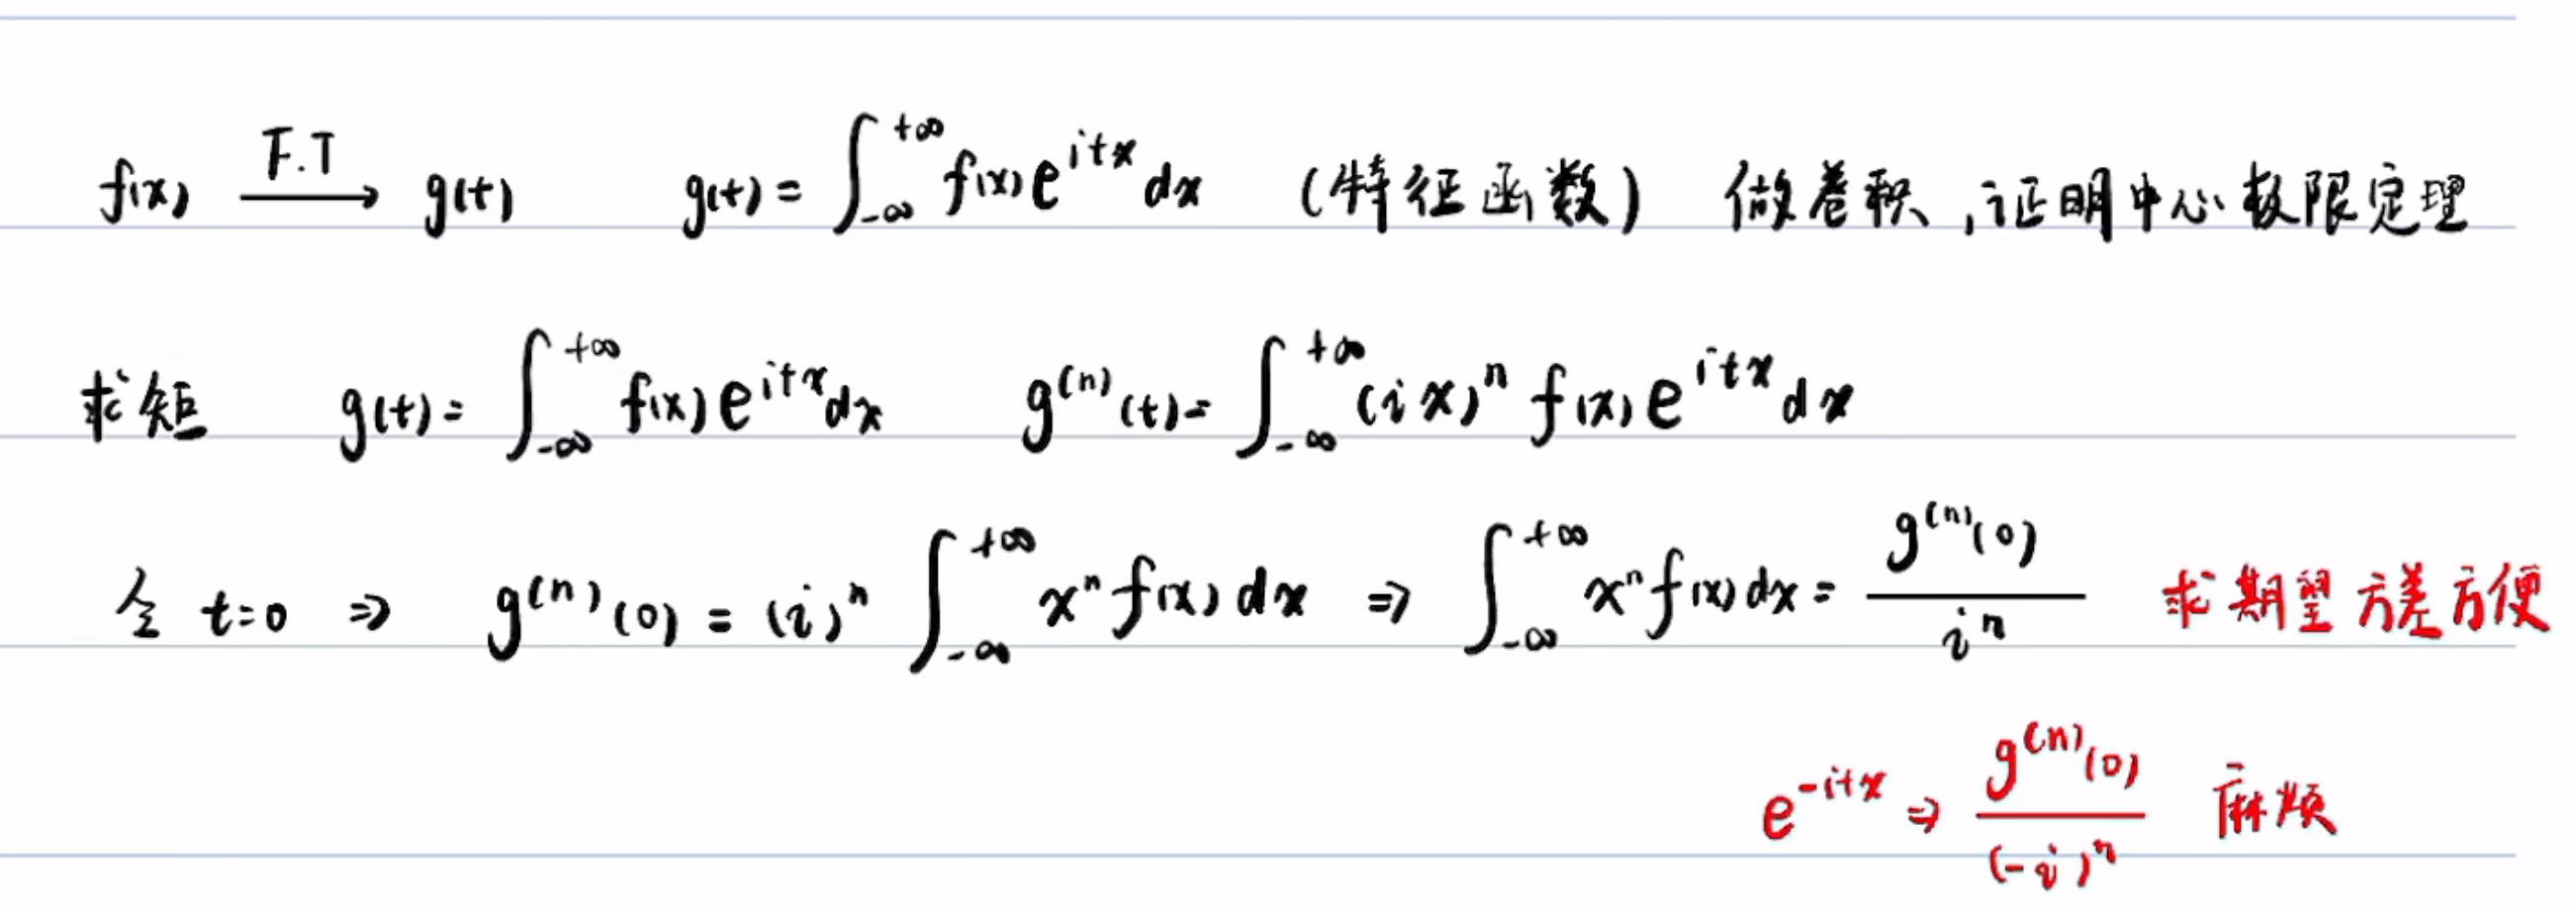 f(x) \xrightarrow{F.T} g(t) g(t) = \int_{-\infty}^{+\infty} f(x) e^{itx} dx (特征函数) 做卷积,证明中心极限定理
求矩 g(t) = \int_{-\infty}^{+\infty} f(x) e^{itx} dx g^{(n)}(t) = \int_{-\infty}^{+\infty} (ix)^n f(x) e^{itx} dx
令 t=0 ⇒ g^{(n)}(0) = (i)^n \int_{-\infty}^{+\infty} x^n f(x) dx ⇒ \int_{-\infty}^{+\infty} x^n f(x) dx = \frac{g^{(n)}(0)}{i^n} 求期望方差方便
e^{-itx} ⇒ \frac{g^{(n)}(0)}{(-i)^n} 麻烦